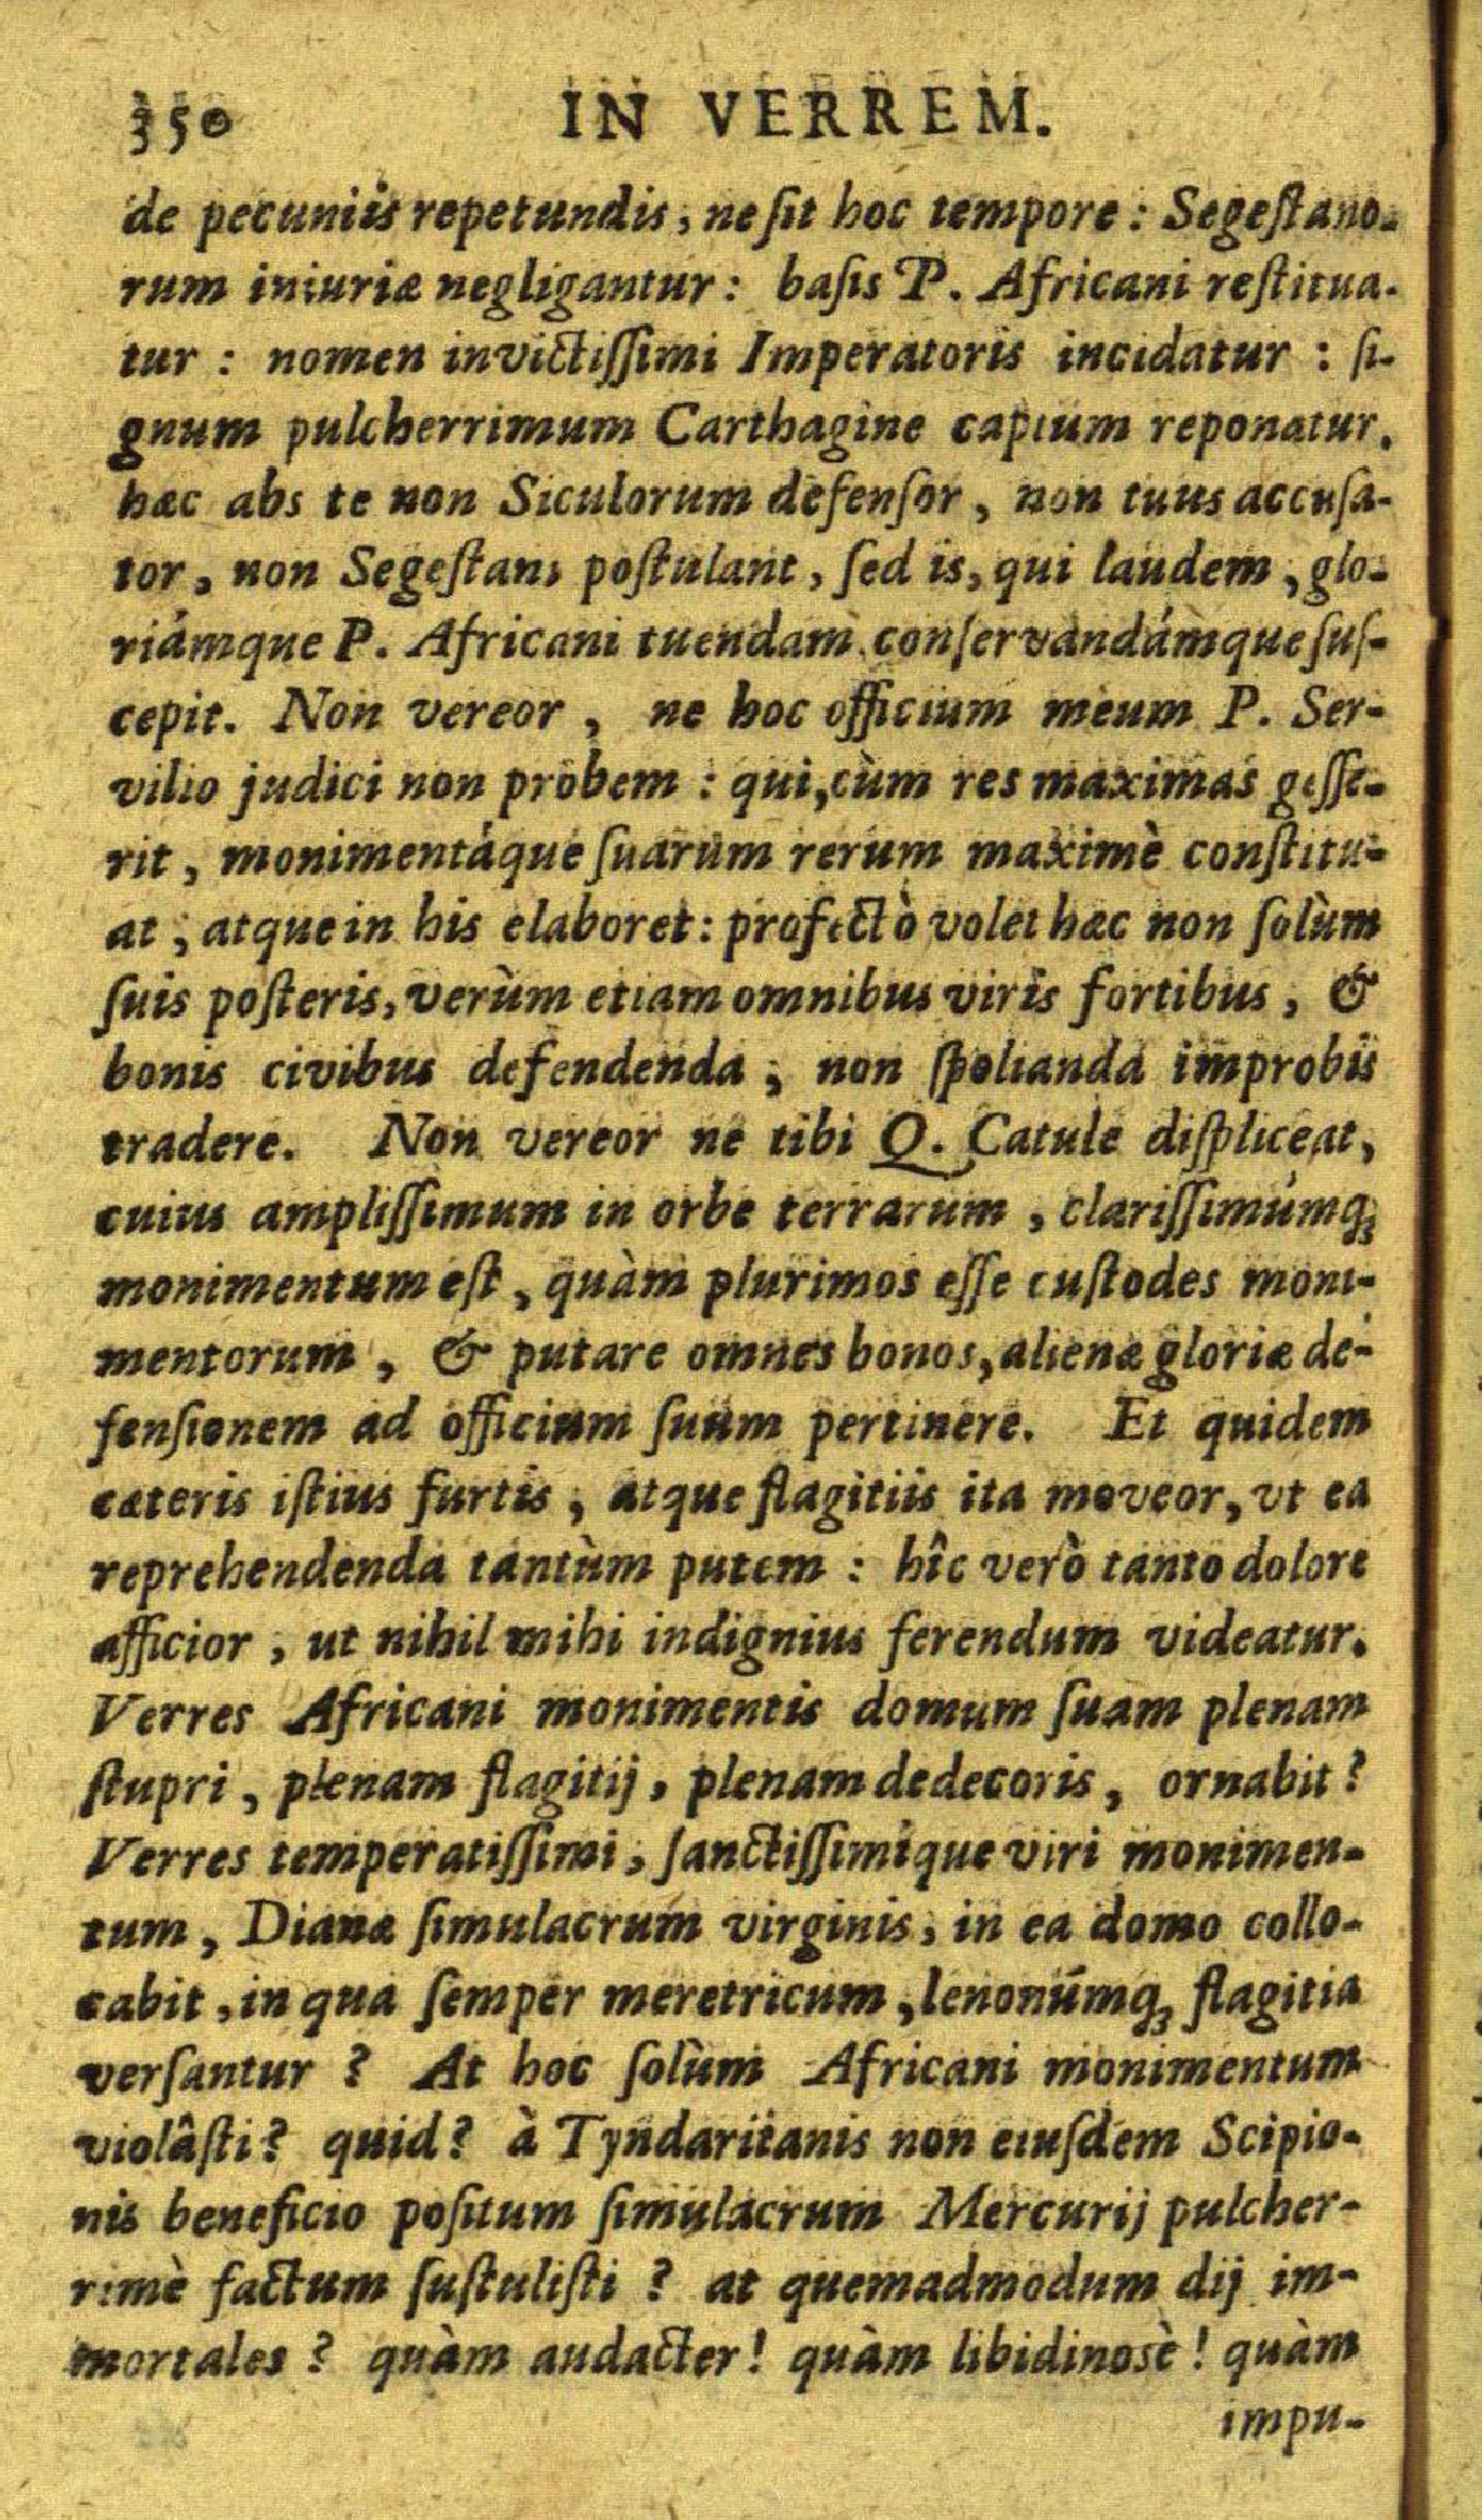 350 IN VERREM.
de pecuniis repetundis, ne ſit hoc tempore: Segeſtano-
rum iniuriæ negligantur: baſis P. Africani reſtitua-
tur: nomen invictiſſimi Imperatoris incidatur: ſi-
gnum pulcherrimum Carthagine captum reponatur.
hæc abs te non Siculorum defenſor, non tuus accuſa-
tor, non Segeſtani poſtulant, ſed is, qui laudem, glo-
riámque P. Africani tuendam conſervandámque ſuſ-
cepit. Non vereor, ne hoc officium meum P. Ser-
vilio judici non probem: qui, cùm res maximas geſſe-
rit, monimentáque ſuarum rerum maximè conſtitu-
at, atque in his elaboret: profectò volet hæc non ſolùm
ſuis poſteris, verùm etiam omnibus viris fortibus, &
bonis civibus defendenda, non ſpolianda improbis
tradere. Non vereor ne tibi Q. Catule diſpliceat,
cuius ampliſſimum in orbe terrarum, clariſſimúmq;
monimentum eſt, quàm plurimos eſſe cuſtodes moni-
mentorum, & putare omnes bonos, alienæ gloriæ de-
fenſionem ad officium ſuum pertinere. Et quidem
cæteris iſtius furtis, atque flagitiis ita moveor, vt ea
reprehendenda tantùm putem: hîc verò tanto dolore
afficior, ut nihil mihi indignius ferendum videatur.
Verres Africani monimentis domum ſuam plenam
ſtupri, plenam flagitij, plenam dedecoris, ornabit?
Verres temperatiſſimi, ſanctiſſimíque viri monimen-
tum, Dianæ ſimulacrum virginis, in ea domo collo-
cabit, in qua ſemper meretricum, lenonúmq; flagitia
verſantur? At hoc ſolùm Africani monimentum
violâſti? quid? à Tyndaritanis non eiuſdem Scipio-
nis beneficio poſitum ſimulacrum Mercurij pulcher-
rimè factum ſuſtuliſti? at quemadmodum dij im-
mortales? quàm audacter! quàm libidinosè! quàm
impu-